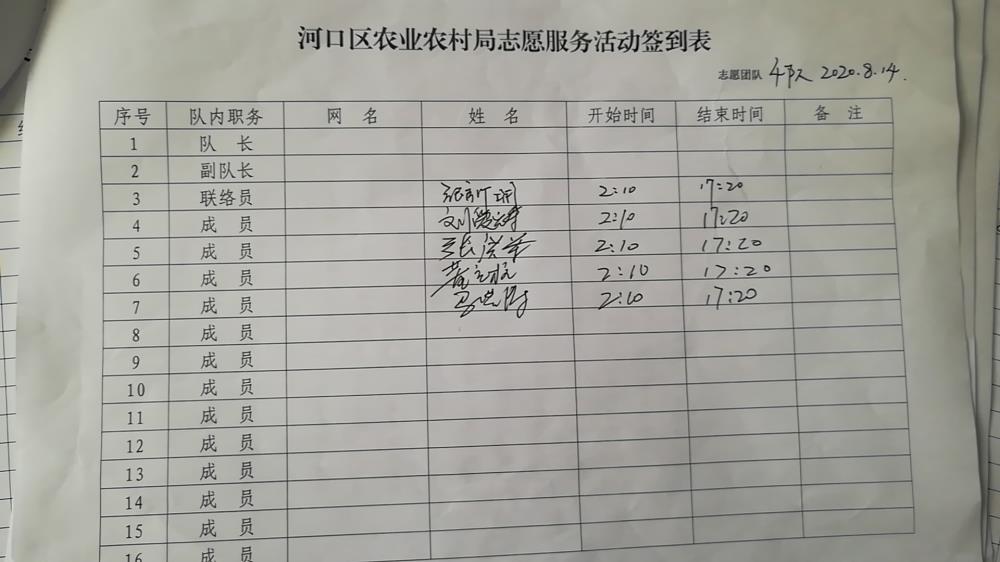 河口区农业农村局志愿服务活动签到表
志愿团队 2020.8.14.
序号 队内职务 网 名 姓 名 开始时间 结束时间 备 注
1 队 长
2 副队长
3 联络员 2:10 17:20
4 成 员 2:10 17:20
5 成 员 2:10 17:20
6 成 员 2:10 17:20
7 成 员 2:10 17:20
8 成 员
9 成 员
10 成 员
11 成 员
12 成 员
13 成 员
14 成 员
15 成 员
16 成 员